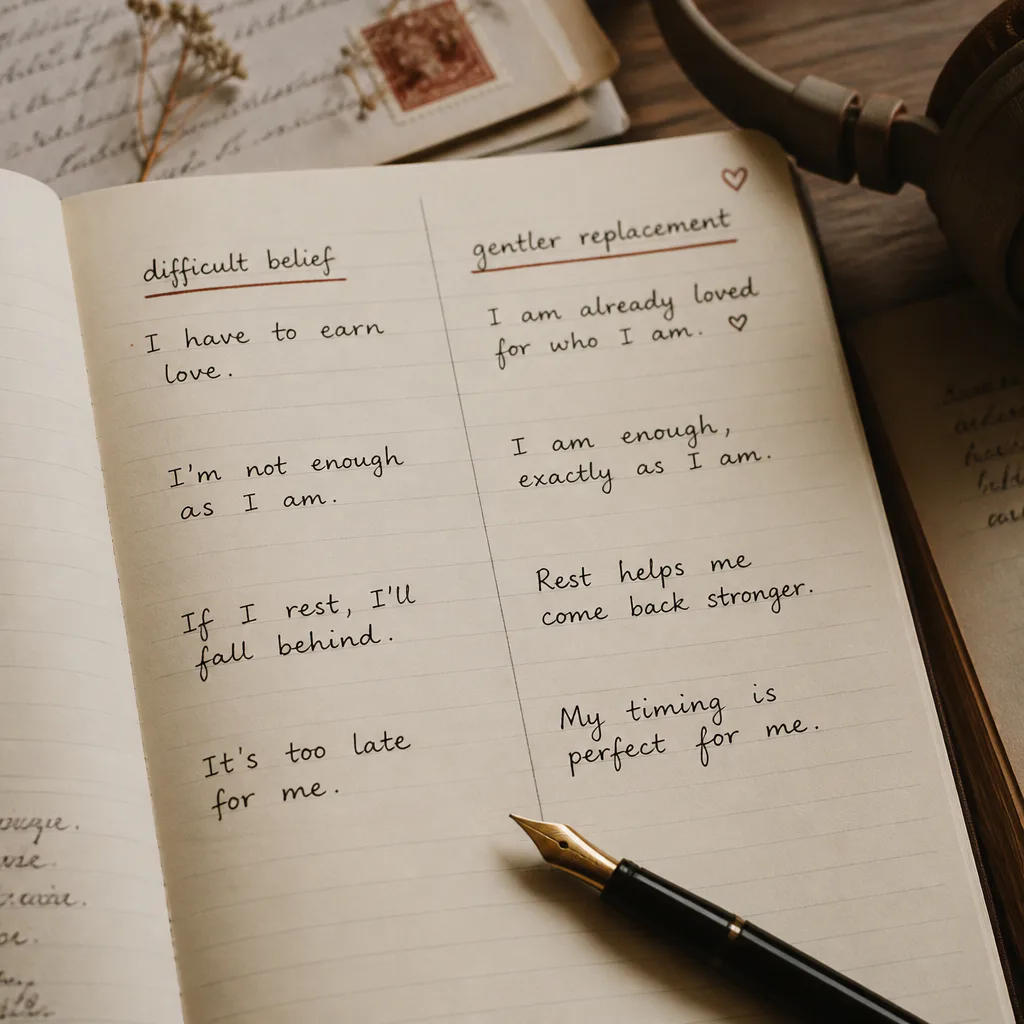 difficult belief
I have to earn
love.
I'm not enough
as I am.
If I rest, I'll
fall behind.
It's too late
for me.
gentler replacement
I am already loved
for who I am.
I am enough,
exactly as I am.
Rest helps me
come back stronger.
My timing is
perfect for me.